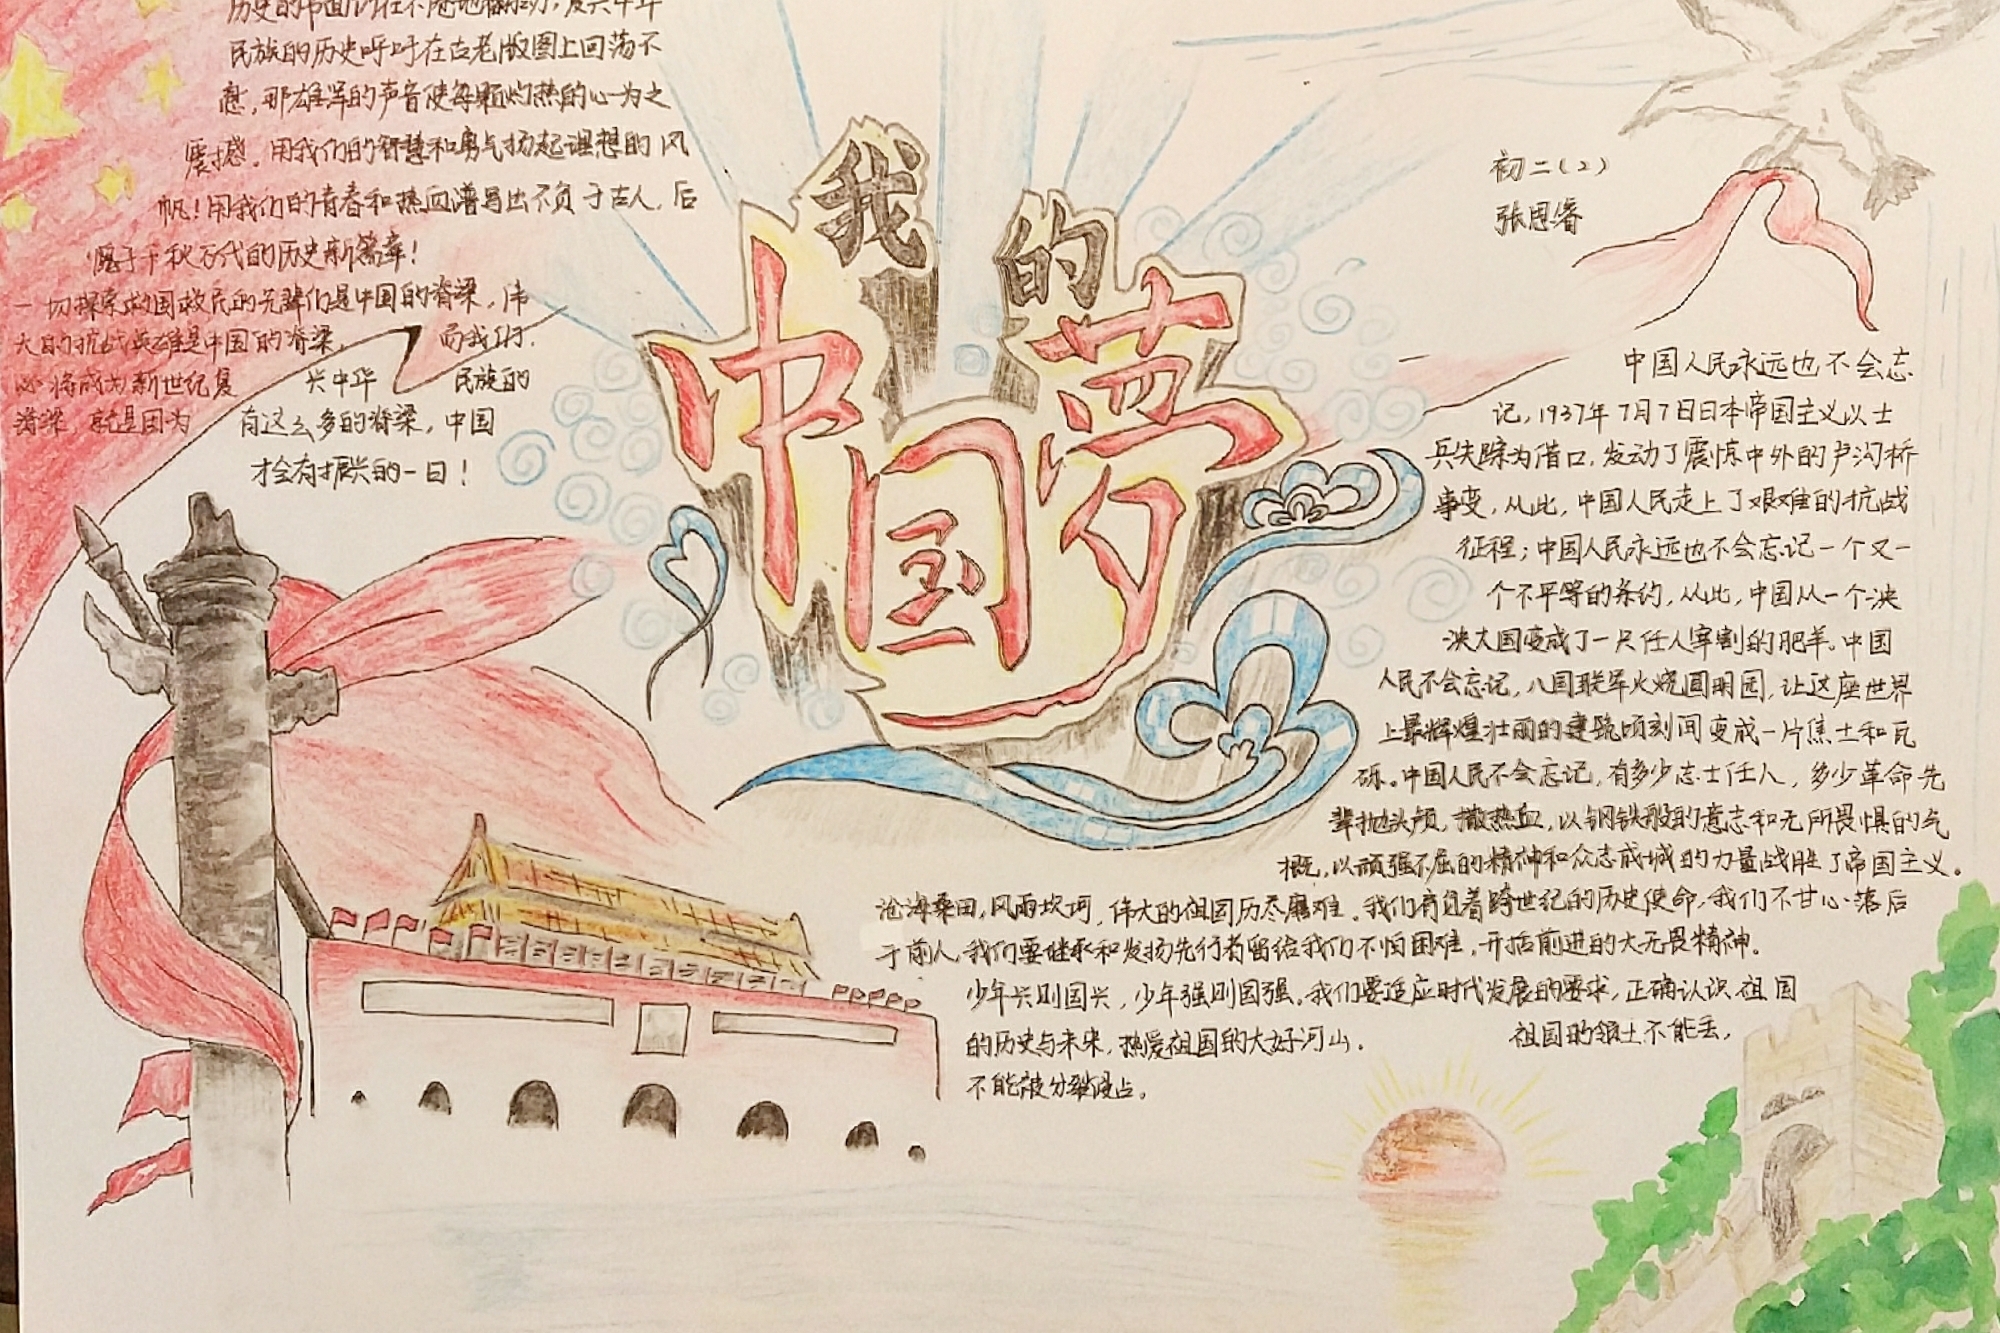 民族的历史呼吁在古老版图上回荡不
息,那雄浑的声音使每颗灼热的心为之
震撼。用我们的智慧和勇气扬起理想的风
帆!用我们的青春和热血谱写出不负于古人,后
愧于千秋万代的历史新篇章!
一切探索救国救民的先辈们是中国的脊梁,伟
大的抗战英雄是中国的脊梁, 而我们,
必将成为新世纪复 兴中华 民族的
脊梁,就是因为 有这么多的脊梁,中国
才会有振兴的一日!
我的
中国梦
初二(2)
张思睿
中国人民永远也不会忘
记,1937年7月7日日本帝国主义以士
兵失踪为借口,发动了震惊中外的卢沟桥
事变,从此,中国人民走上了艰难的抗战
征程;中国人民永远也不会忘记一个又一
个不平等的条约,从此,中国从一个泱
泱大国变成了一只任人宰割的肥羊。中国
人民不会忘记,八国联军火烧圆明园,让这座世界
上最辉煌壮丽的建筑顷刻间变成一片焦土和瓦
砾。中国人民不会忘记,有多少志士仁人,多少革命先
辈抛头颅,撒热血,以钢铁般的意志和无所畏惧的气
概,以顽强不屈的精神和众志成城的力量战胜了帝国主义。
沧海桑田,风雨坎坷,伟大的祖国历尽磨难。我们肩负着跨世纪的历史使命,我们不甘心落后
于前人,我们要继承和发扬先行者留给我们不怕困难,开拓前进的大无畏精神。
少年兴则国兴,少年强则国强。我们要适应时代发展的要求,正确认识祖国
的历史与未来,热爱祖国的大好河山。 祖国的领土不能丢,
不能被分裂侵占。